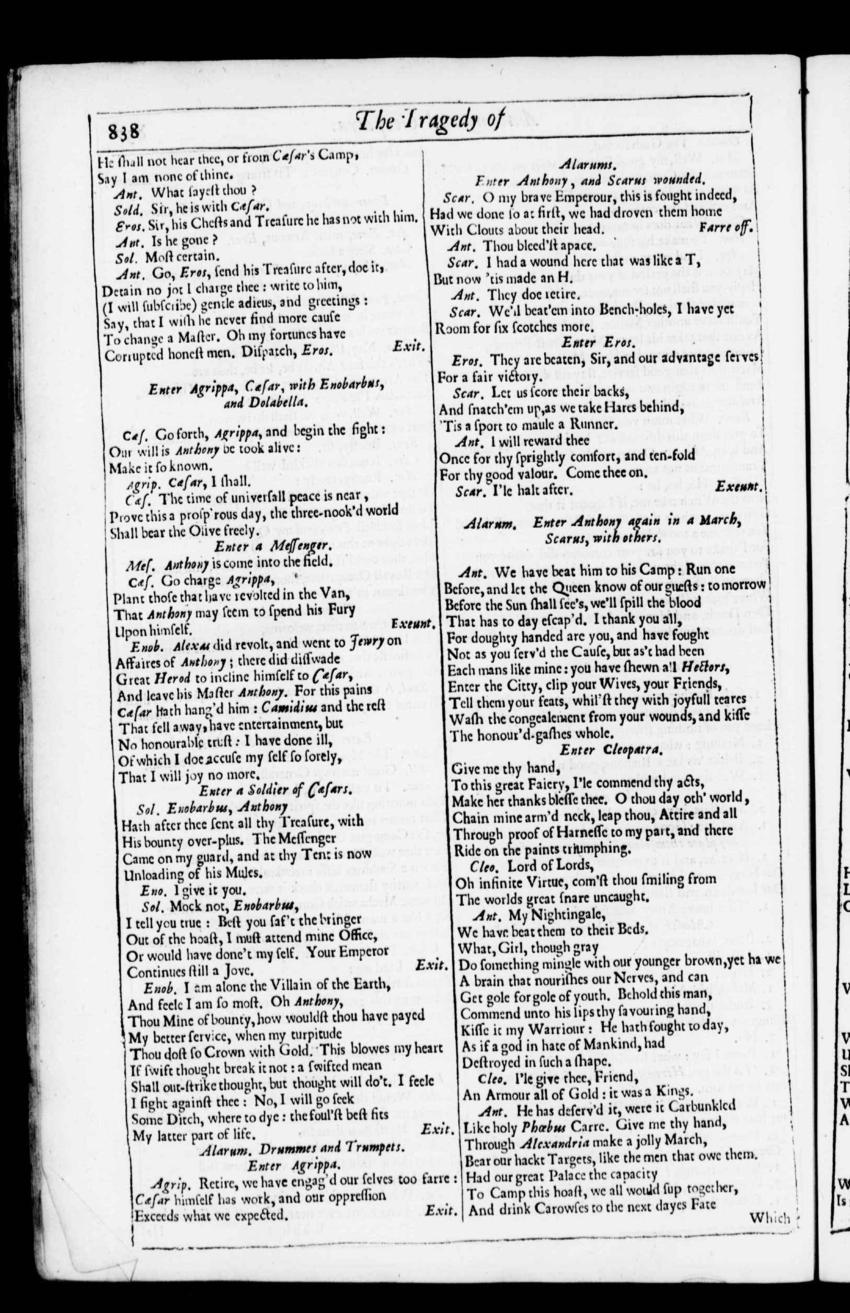 838
The Tragedy of
He ſhall not hear thee, or from Cæſar's Camp,
Say I am none of thine.
Ant. What ſayeſt thou ?
Sold. Sir, he is with Cæſar.
Eros. Sir, his Cheſts and Treaſure he has not with him.
Ant. Is he gone ?
Sol. Moſt certain.
Ant. Go, Eros, ſend his Treaſure after, doe it,
Detain no jot I charge thee : write to him,
(I will ſubſcribe) gentle adieus, and greetings :
Say, that I wiſh he never find more cauſe
To change a Maſter. Oh my fortunes have
Corrupted honeſt men. Diſpatch, Eros. Exit.
Enter Agrippa, Cæſar, with Enobarbus,
and Dolabella.
Cæſ. Go forth, Agrippa, and begin the fight :
Our will is Anthony be took alive :
Make it ſo known.
Agrip. Cæſar, I ſhall.
Cæſ. The time of univerſall peace is near,
Prove this a proſp'rous day, the three-nook'd world
Shall bear the Olive freely.
Enter a Meſſenger.
Meſ. Anthony is come into the field.
Cæſ. Go charge Agrippa,
Plant thoſe that have revolted in the Van,
That Anthony may ſeem to ſpend his Fury
Upon himſelf. Exeunt.
Enob. Alexas did revolt, and went to Jewry on
Affaires of Anthony ; there did diſſwade
Great Herod to incline himſelf to Cæſar,
And leave his Maſter Anthony. For this pains
Cæſar hath hang'd him : Camidius and the reſt
That fell away, have entertainment, but
No honourable truſt : I have done ill,
Of which I doe accuſe my ſelf ſo ſorely,
That I will joy no more.
Enter a Soldier of Cæſars.
Sol. Enobarbus, Anthony
Hath after thee ſent all thy Treaſure, with
His bounty over-plus. The Meſſenger
Came on my guard, and at thy Tent is now
Unloading of his Mules.
Eno. I give it you.
Sol. Mock not, Enobarbus,
I tell you true : Beſt you ſaf't the bringer
Out of the hoaſt, I muſt attend mine Office,
Or would have done't my ſelf. Your Emperor
Continues ſtill a Jove. Exit.
Enob. I am alone the Villain of the Earth,
And feele I am ſo moſt. Oh Anthony,
Thou Mine of bounty, how wouldſt thou have payed
My better ſervice, when my turpitude
Thou doſt ſo Crown with Gold. This blowes my heart
If ſwift thought break it not : a ſwifted mean
Shall out-ſtrike thought, but thought will do't. I feele
I fight againſt thee : No, I will go ſeek
Some Ditch, where to dye : the foul'ſt beſt fits
My latter part of life. Exit.
Alarum. Drummes and Trumpets.
Enter Agrippa.
Agrip. Retire, we have engag'd our ſelves too farre :
Cæſar himſelf has work, and our oppreſſion
Exceeds what we expected. Exit.
Alarums.
Enter Anthony, and Scarus wounded.
Scar. O my brave Emperour, this is fought indeed,
Had we done ſo at firſt, we had droven them home
With Clouts about their head. Farre off.
Ant. Thou bleed'ſt apace.
Scar. I had a wound here that was like a T,
But now 'tis made an H.
Ant. They doe retire.
Scar. We'l beat'em into Bench-holes, I have yet
Room for ſix ſcotches more.
Enter Eros.
Eros. They are beaten, Sir, and our advantage ſerves
For a fair victory.
Scar. Let us ſcore their backs,
And ſnatch'em up,as we take Hares behind,
'Tis a ſport to maule a Runner.
Ant. I will reward thee
Once for thy ſprightly comfort, and ten-fold
For thy good valour. Come thee on.
Scar. I'le halt after. Exeunt.
Alarum. Enter Anthony again in a March,
Scarus, with others.
Ant. We have beat him to his Camp : Run one
Before, and let the Queen know of our gueſts : to morrow
Before the Sun ſhall ſee's, we'll ſpill the blood
That has to day eſcap'd. I thank you all,
For doughty handed are you, and have fought
Not as you ſerv'd the Cauſe, but as't had been
Each mans like mine : you have ſhewn all Hectors,
Enter the Citty, clip your Wives, your Friends,
Tell them your feats, whil'ſt they with joyfull teares
Waſh the congealement from your wounds, and kiſſe
The honour'd-gaſhes whole.
Enter Cleopatra.
Give me thy hand,
To this great Faiery, I'le commend thy acts,
Make her thanks bleſſe thee. O thou day oth' world,
Chain mine arm'd neck, leap thou, Attire and all
Through proof of Harneſſe to my part, and there
Ride on the paints triumphing.
Cleo. Lord of Lords,
Oh infinite Virtue, com'ſt thou ſmiling from
The worlds great ſnare uncaught.
Ant. My Nightingale,
We have beat them to their Beds.
What, Girl, though gray
Do ſomething mingle with our younger brown,yet ha we
A brain that nouriſhes our Nerves, and can
Get gole for gole of youth. Behold this man,
Commend unto his lips thy ſavouring hand,
Kiſſe it my Warriour : He hath fought to day,
As if a god in hate of Mankind, had
Deſtroyed in ſuch a ſhape.
Cleo. I'le give thee, Friend,
An Armour all of Gold : it was a Kings.
Ant. He has deſerv'd it, were it Carbunkled
Like holy Phœbus Carre. Give me thy hand,
Through Alexandria make a jolly March,
Bear our hackt Targets, like the men that owe them.
Had our great Palace the capacity
To Camp this hoaſt, we all would ſup together,
And drink Carowſes to the next dayes Fate
Which